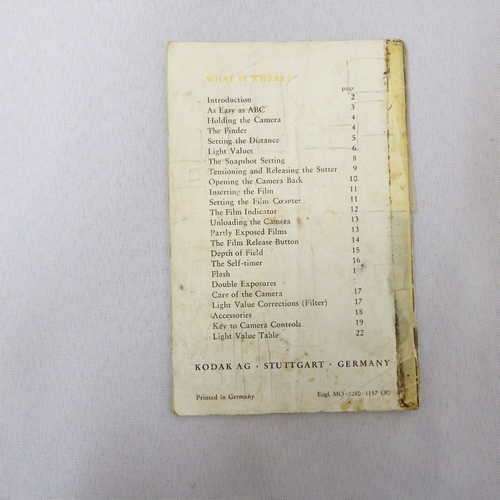 WHAT IS WHERE?
page
Introduction 2
As Easy as ABC 3
Holding the Camera 4
The Finder 4
Setting the Distance 5
Light Values 6
The Snapshot Setting 8
Tensioning and Releasing the Sutter 9
Opening the Camera Back 10
Inserting the Film 11
Setting the Film Counter 11
The Film Indicator 12
Unloading the Camera 13
Partly Exposed Films 13
The Film Release Button 14
Depth of Field 15
The Self-timer 16
Flash
Double Exposures
Care of the Camera 17
Light Value Corrections (Filter) 17
Accessories 18
Key to Camera Controls 19
Light Value Table 22
KODAK AG · STUTTGART · GERMANY
Printed in Germany Engl.